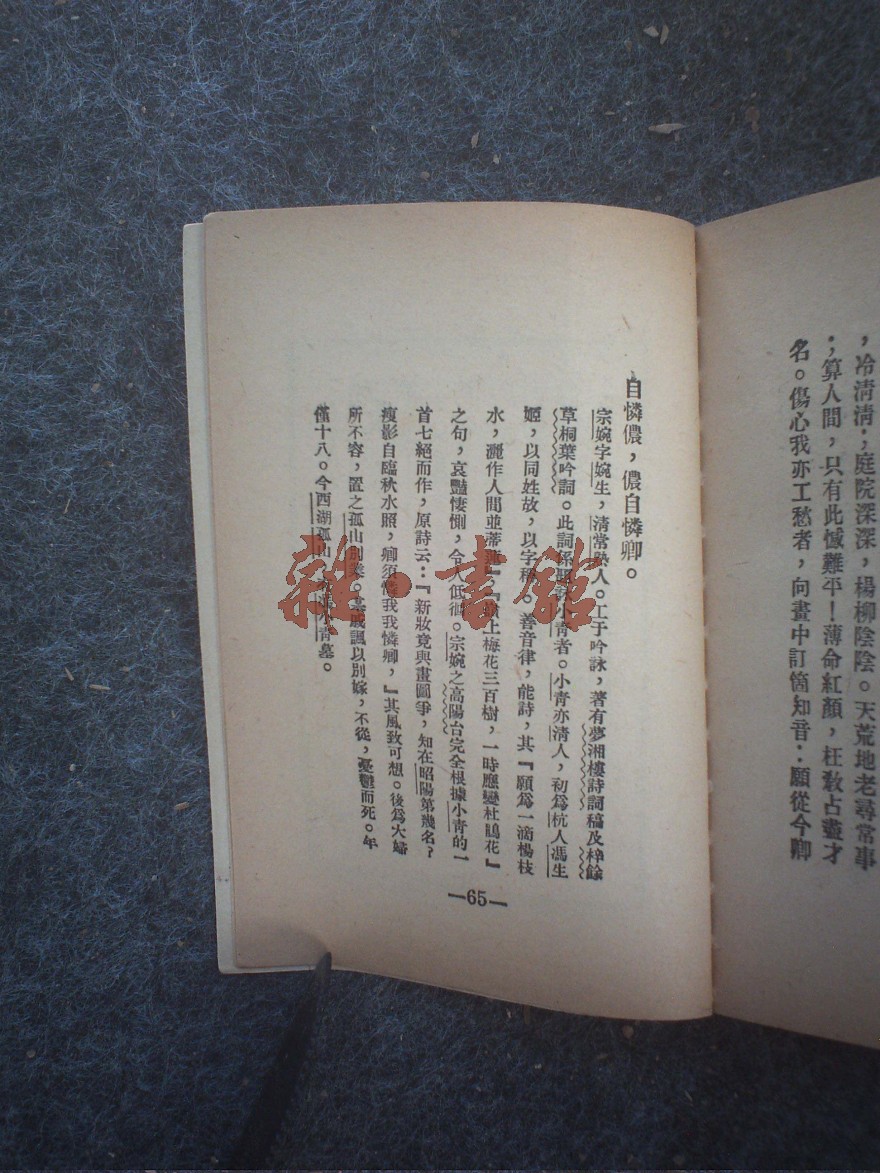 ，冷清清；庭院深深，楊柳陰陰。天荒地老尋常事
；算人間，只有此憾難平！薄命紅顏，枉教占盡才
名。傷心我亦工愁者，向畫中訂箇知音：願從今卿
自憐儂，儂自憐卿。
宗婉字婉生，清常熟人。工于吟詠，著有夢湘樓詩詞稿及梓餘
草桐葉吟詞。此詞係題小青者。小青亦清人，初爲杭人馮生
姬，以同姓故，以字稱。善音律，能詩，其『願爲一滴楊枝
水，灑作人間並蒂蓮』。『上梅花三百樹，一時應變杜鵑花』
之句，哀豔悽惻，令人低徊。宗婉之高陽台完全根據小青的一
首七絕而作，原詩云：『新妝竟與畫圖爭，知在昭陽第幾名？
瘦影自臨秋水照，卿須憐我我憐卿，』其風致可想。後爲大婦
所不容，置之孤山別業。戚諷以別嫁，不從，憂鬱而死。年
僅十八。今西湖孤山小青墓。
—65—
雜·書館